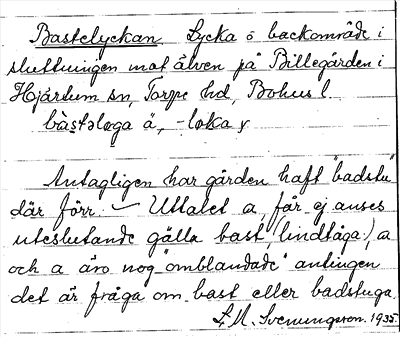 Bastelyckan Lycka o backområde i
sluttningen mot älven på Billegården i
Hjärtum sn, Torpe hd, Bohus l.
bàstəløga ä, -løka y
Antagligen har gården haft "badstu"
där förr. – Uttalet a, får ej anses
uteslutande gälla bast (lindtåga), a
och a äro nog "omblandade" antingen
det är fråga om bast eller badstuga.
S. M. Svenningsson. 1935.